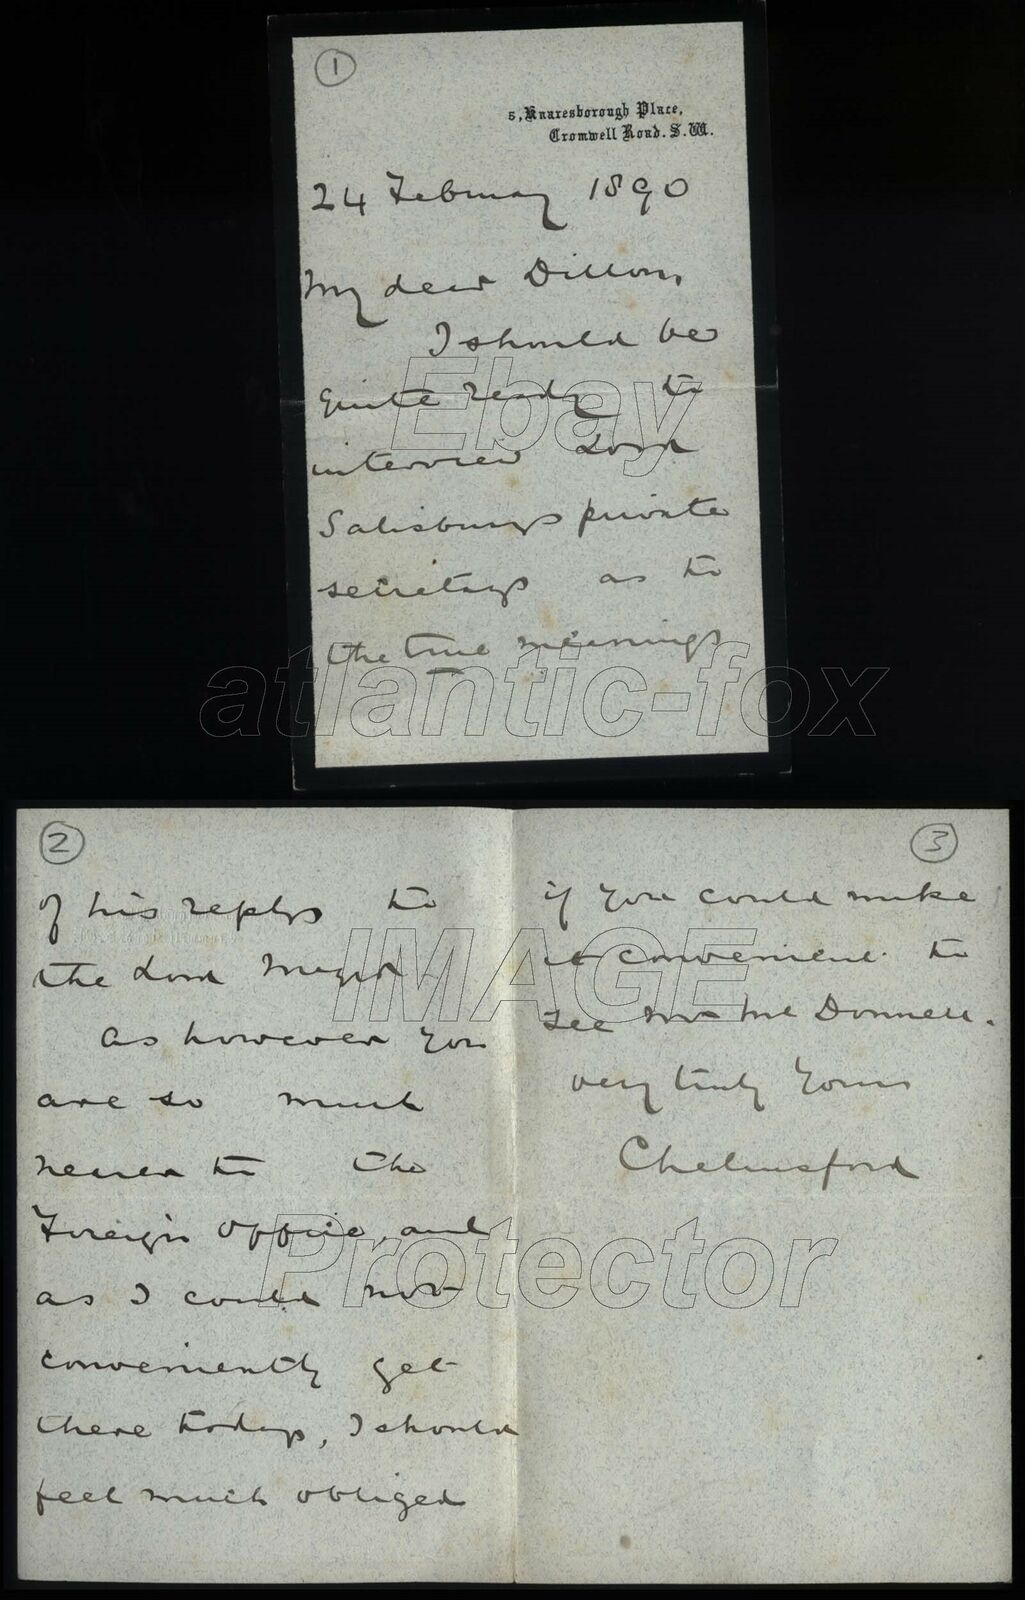 1
5, Knaresborough Place,
Cromwell Road. S.W.
24 February 1890
My dear Dillon,
I should be
quite ready to
interview Lord
Salisbury's private
secretary as to
the true meaning
of his reply to
the Lord Mayor.
As however you
are so much
nearer to the
Foreign Office, and
as I could not
conveniently get
there today, I should
feel much obliged
if you could make
it convenient to
see Mr McDonnell.
very truly yours
Chelmsford
2
3
Ebay
atlantic-fox
IMAGE
Protector